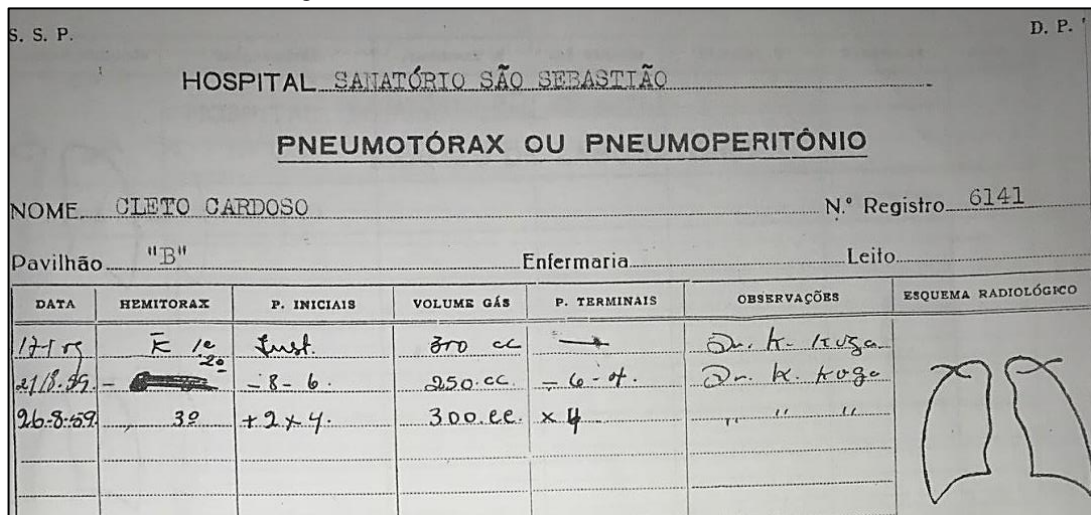 S. S. P. D. P.
HOSPITAL SANATÓRIO SÃO SEBASTIÃO
PNEUMOTÓRAX OU PNEUMOPERITÔNIO
NOME CLETO CARDOSO N.º Registro 6141
Pavilhão "B" Enfermaria Leito
DATA HEMITORAX P. INICIAIS VOLUME GÁS P. TERMINAIS OBSERVAÇÕES ESQUEMA RADIOLÓGICO
Inst. cc Dr. K. Kuga
2º - 8 - 6. 250.cc. Dr. K. Kuga
26-8-59. 3º + 2 x 4. 300.cc. x 4 " " "